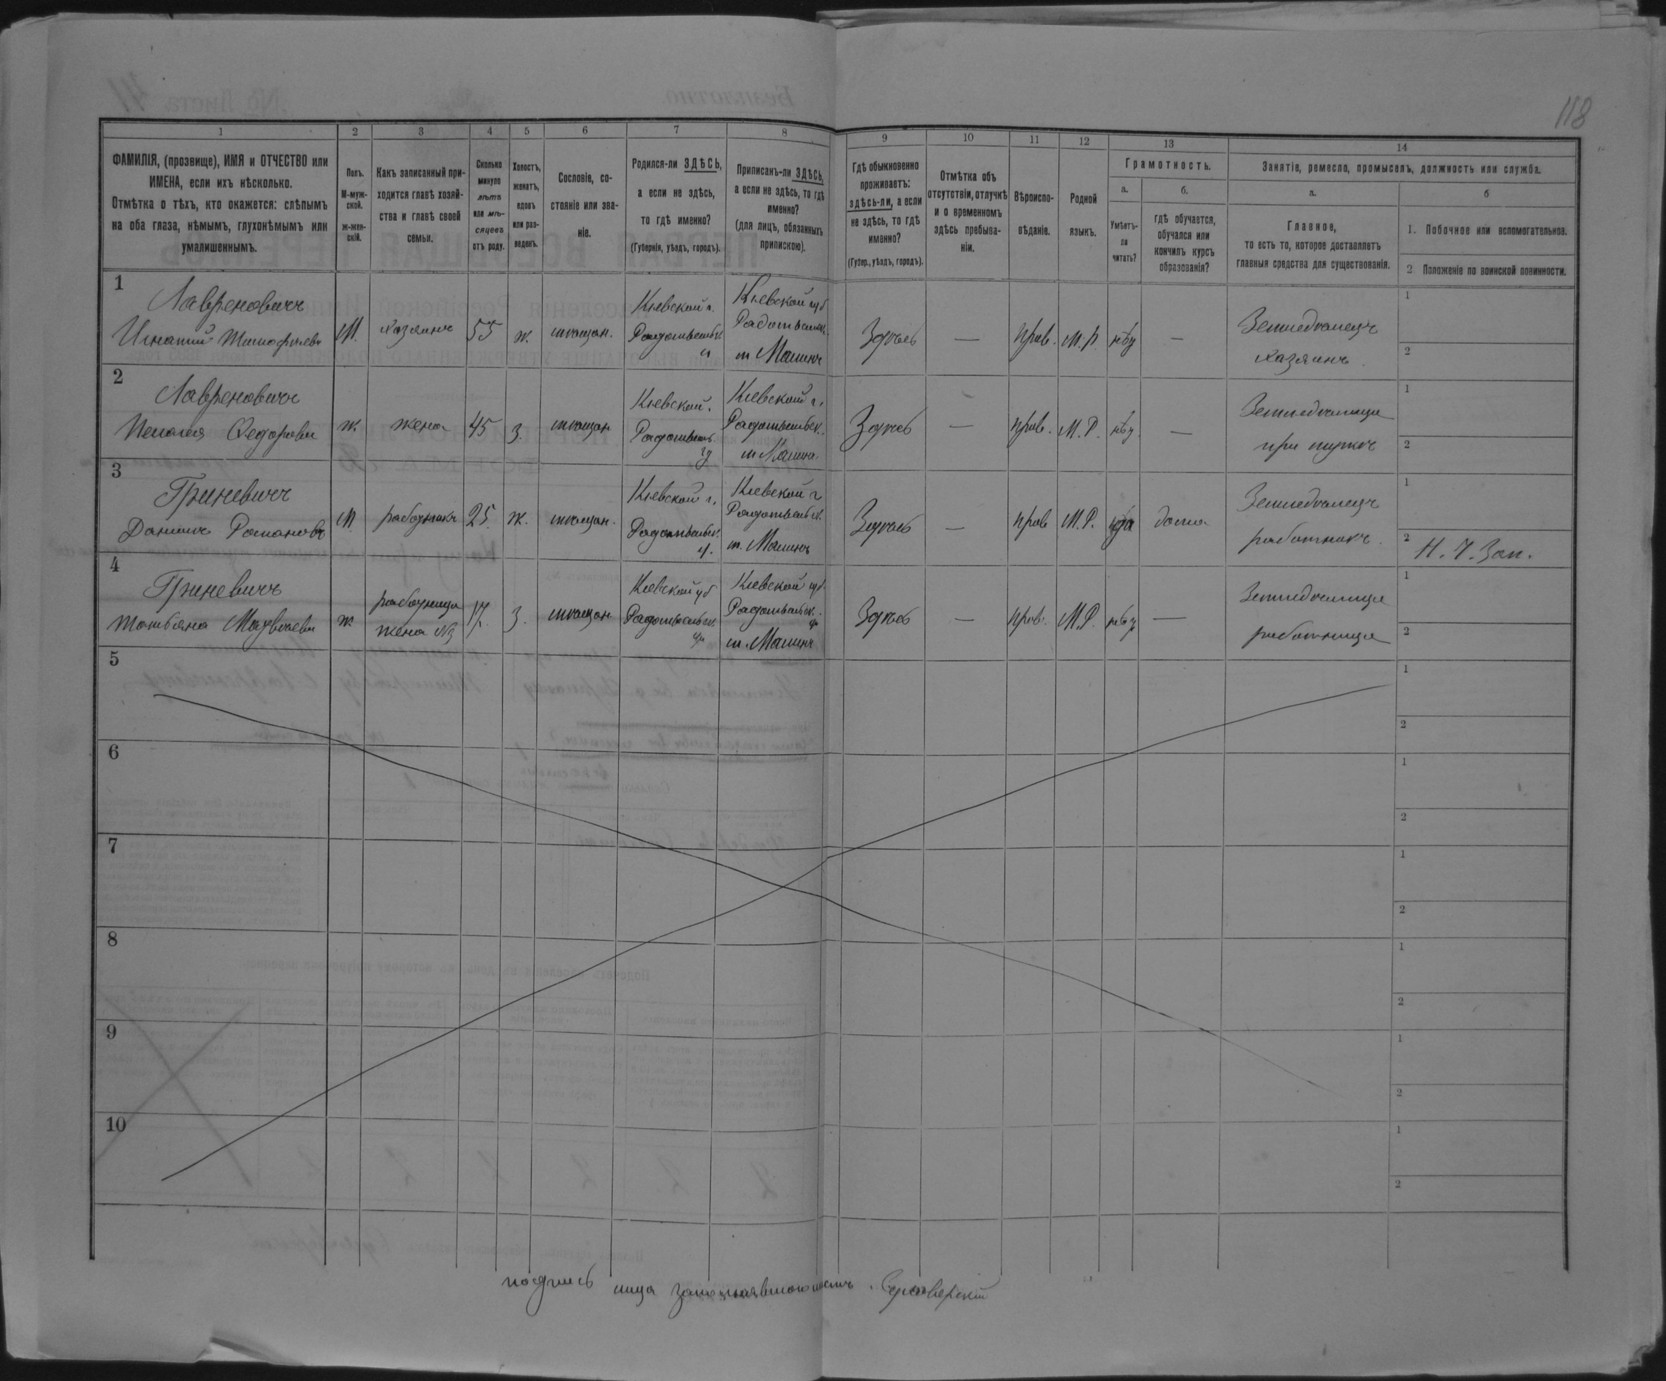 118
1
2
3
4
5
6
7
8
9
10
11
12
13
14
ФАМИЛІЯ, (прозвище), ИМЯ и ОТЧЕСТВО или
ИМЕНА, если ихъ нѣсколько.
Отмѣтка о тѣхъ, кто окажется: слѣпымъ
на оба глаза, нѣмымъ, глухонѣмымъ или
умалишеннымъ.
Полъ.
М-муж-
ской.
ж-жен-
скій.
Какъ записанный при-
ходится главѣ хозяй-
ства и главѣ своей
семьи.
Сколько
минуло
лѣтъ
или мѣ-
сяцевъ
отъ роду.
Холостъ,
женатъ,
вдовъ
или раз-
веденъ.
Сословіе, со-
стояніе или зва-
ніе.
Родился-ли ЗДѢСЬ,
а если не здѣсь,
то гдѣ именно?
(Губернія, уѣздъ, городъ).
Приписанъ-ли ЗДѢСЬ,
а если не здѣсь, то гдѣ
именно?
(для лицъ, обязанныхъ
припискою).
Гдѣ обыкновенно
проживаетъ:
здѣсь-ли, а если
не здѣсь, то гдѣ
именно?
(Губер., уѣздъ, городъ).
Отмѣтка объ
отсутствіи, отлучкѣ
и о временномъ
здѣсь пребыва-
ніи.
Вѣроиспо-
вѣданіе.
Родной
языкъ.
Грамотность.
а.
б.
Умѣетъ-
ли
читать?
гдѣ обучается,
обучался или
кончилъ курсъ
образованія?
Занятіе, ремесло, промыселъ, должность или служба.
а.
б
Главное,
то есть то, которое доставляетъ
главныя средства для существованія.
1. Побочное или вспомогательное.
2 Положеніе по воинской повинности.
1
Лавреновичъ
Игнатій
М.
хозяинъ
55
ж.
мѣщан.
Кіевской г.
Радомысльск.
Кіевской губ
Радомысльск.
м Малинъ
Здѣсь
—
прав.
М.Р.
нѣтъ
—
Земледѣлецъ
хозяинъ
1
2
2
Лавреновичъ
Пелагея Федорова
ж.
жена
45
з.
мѣщан.
Кіевской г.
Радомысльск.
Кіевской г.
Радомысльск.
м Малинъ
Здѣсь
—
прав.
М.Р.
нѣтъ
—
Земледѣлица
при мужѣ
1
2
3
Гриневичъ
Даніилъ Романовъ
М.
работникъ
25
ж.
мѣщан.
Кіевской г.
Радомысльск.
Кіевской г
Радомысльск.
м. Малинъ
Здѣсь
—
прав
М.Р.
да
дома
Земледѣлецъ
работникъ
1
2
Н. Ч. Зап.
4
Гриневичъ
Татьяна Матвѣева
ж.
работница
жена №3
17.
з.
мѣщан
Кіевской губ
Радомысльск.
Кіевской губ
Радомысльск.
м. Малинъ
Здѣсь
—
прав.
М.Р.
нѣтъ
—
Земледѣлица
работница
1
2
5
1
2
6
1
2
7
1
2
8
1
2
9
1
2
10
1
2
подпись лица